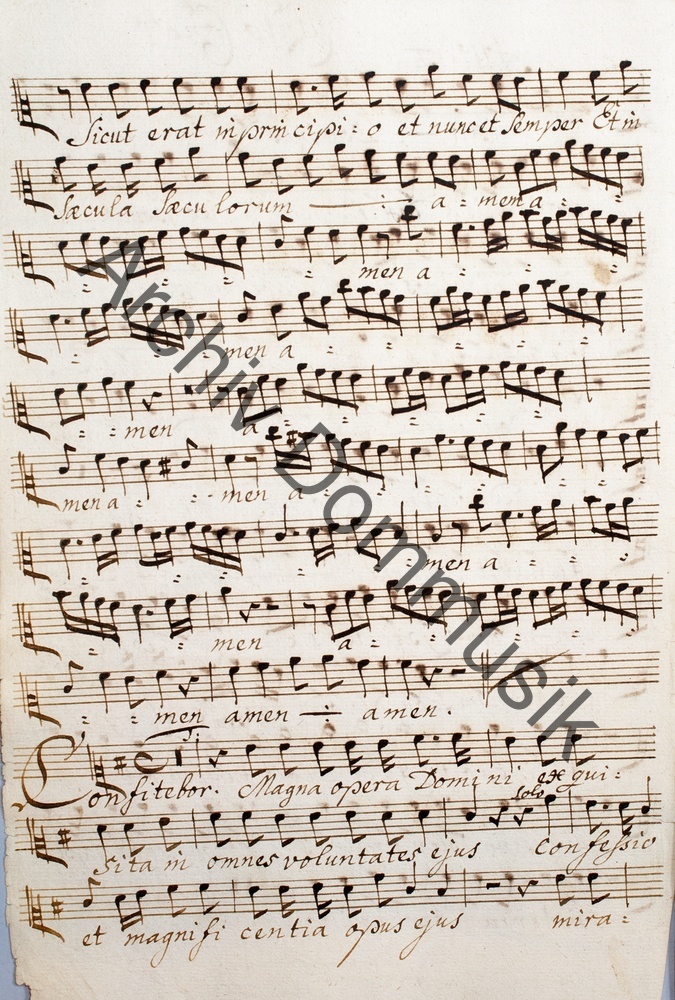 Sicut erat in principi = o et nunc et semper Et in
sæcula sæculorum a = men a
men a
men a
men a
men a men a
men a
men a
men amen amen.
Confitebor. Magna opera Domini exqui =
solo
sita in omnes voluntates ejus Confessio
et magnifi centia opus ejus mira =
Archiv Dommusik